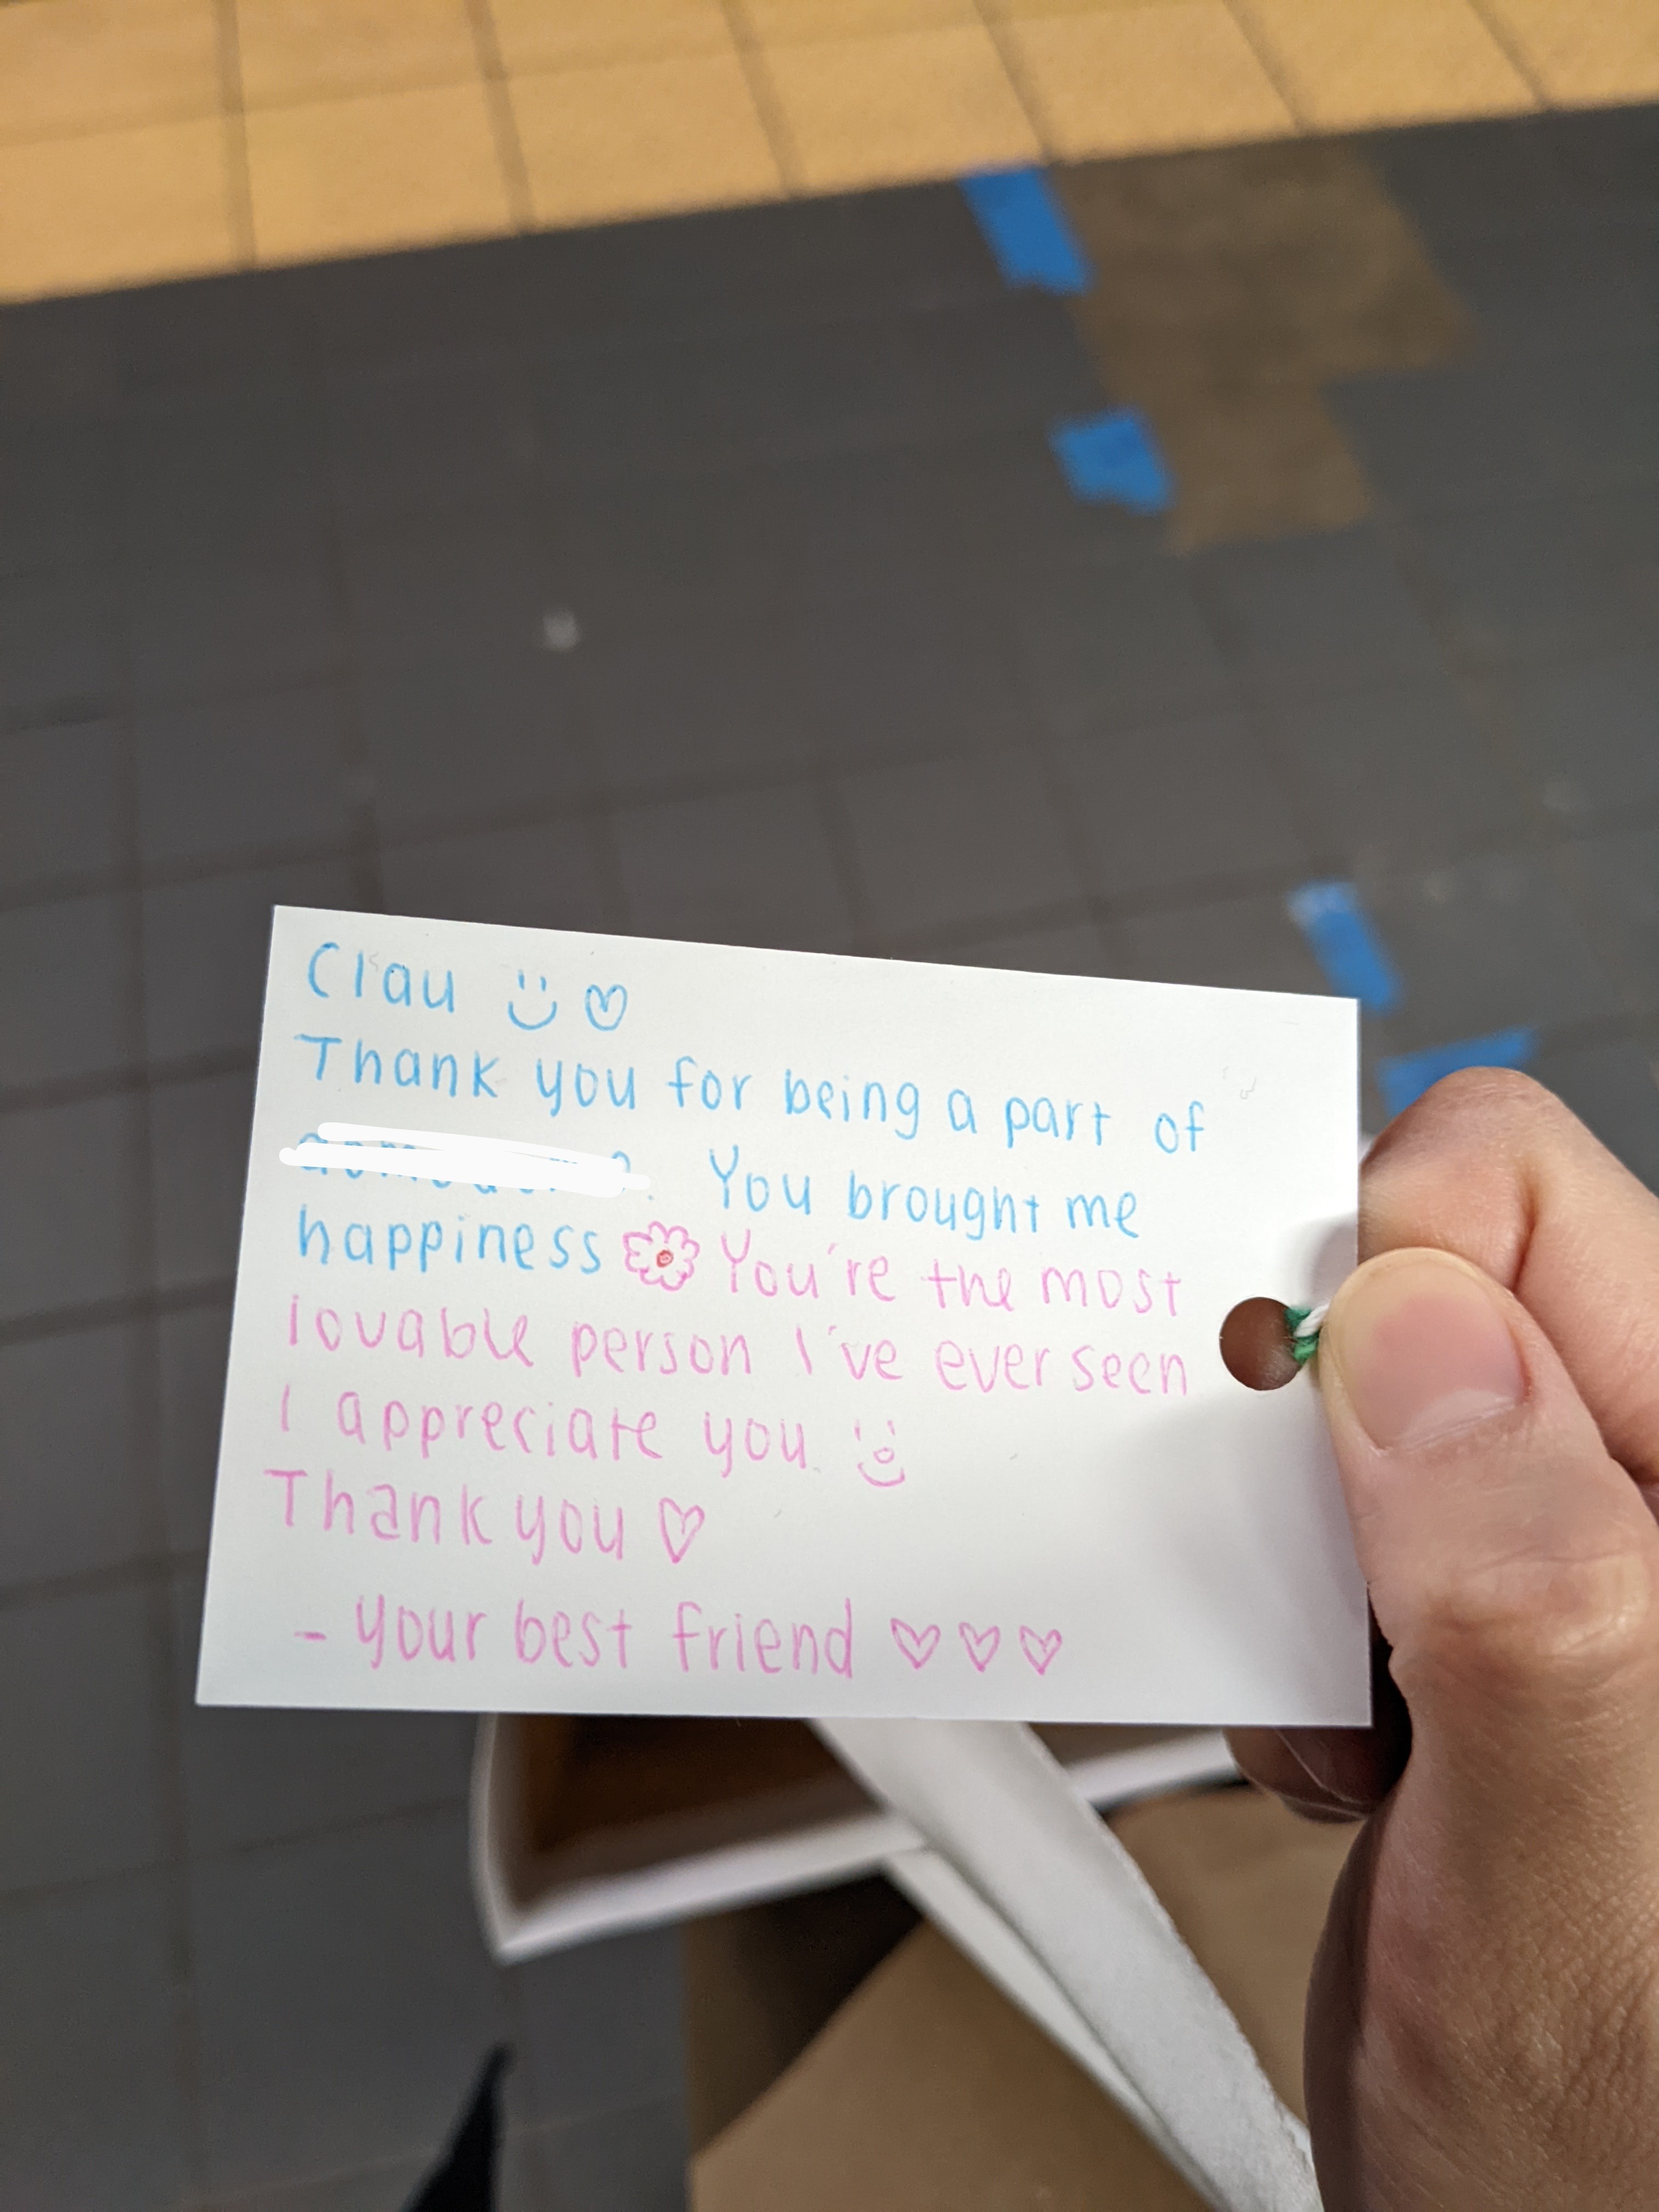 Clau
Thank you for being a part of
You brought me
happiness You're the most
lovable person I've ever seen
I appreciate you.
Thank you
- your best friend